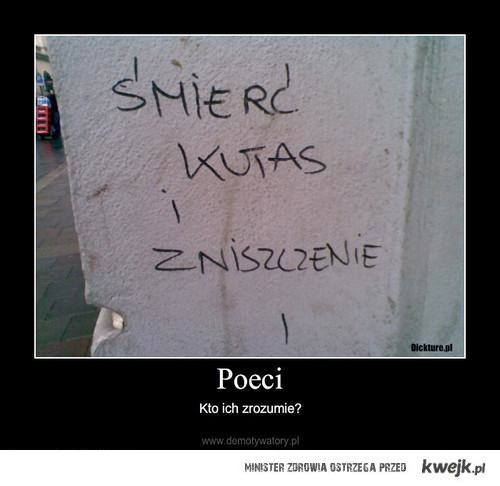 ŚMIERĆ
KUTAS
i
ZNiSZCZENiE
Dickture.pl
Poeci
Kto ich zrozumie?
www.demotywatory.pl
MINISTER ZDROWIA OSTRZEGA PRZED kwejk.pl